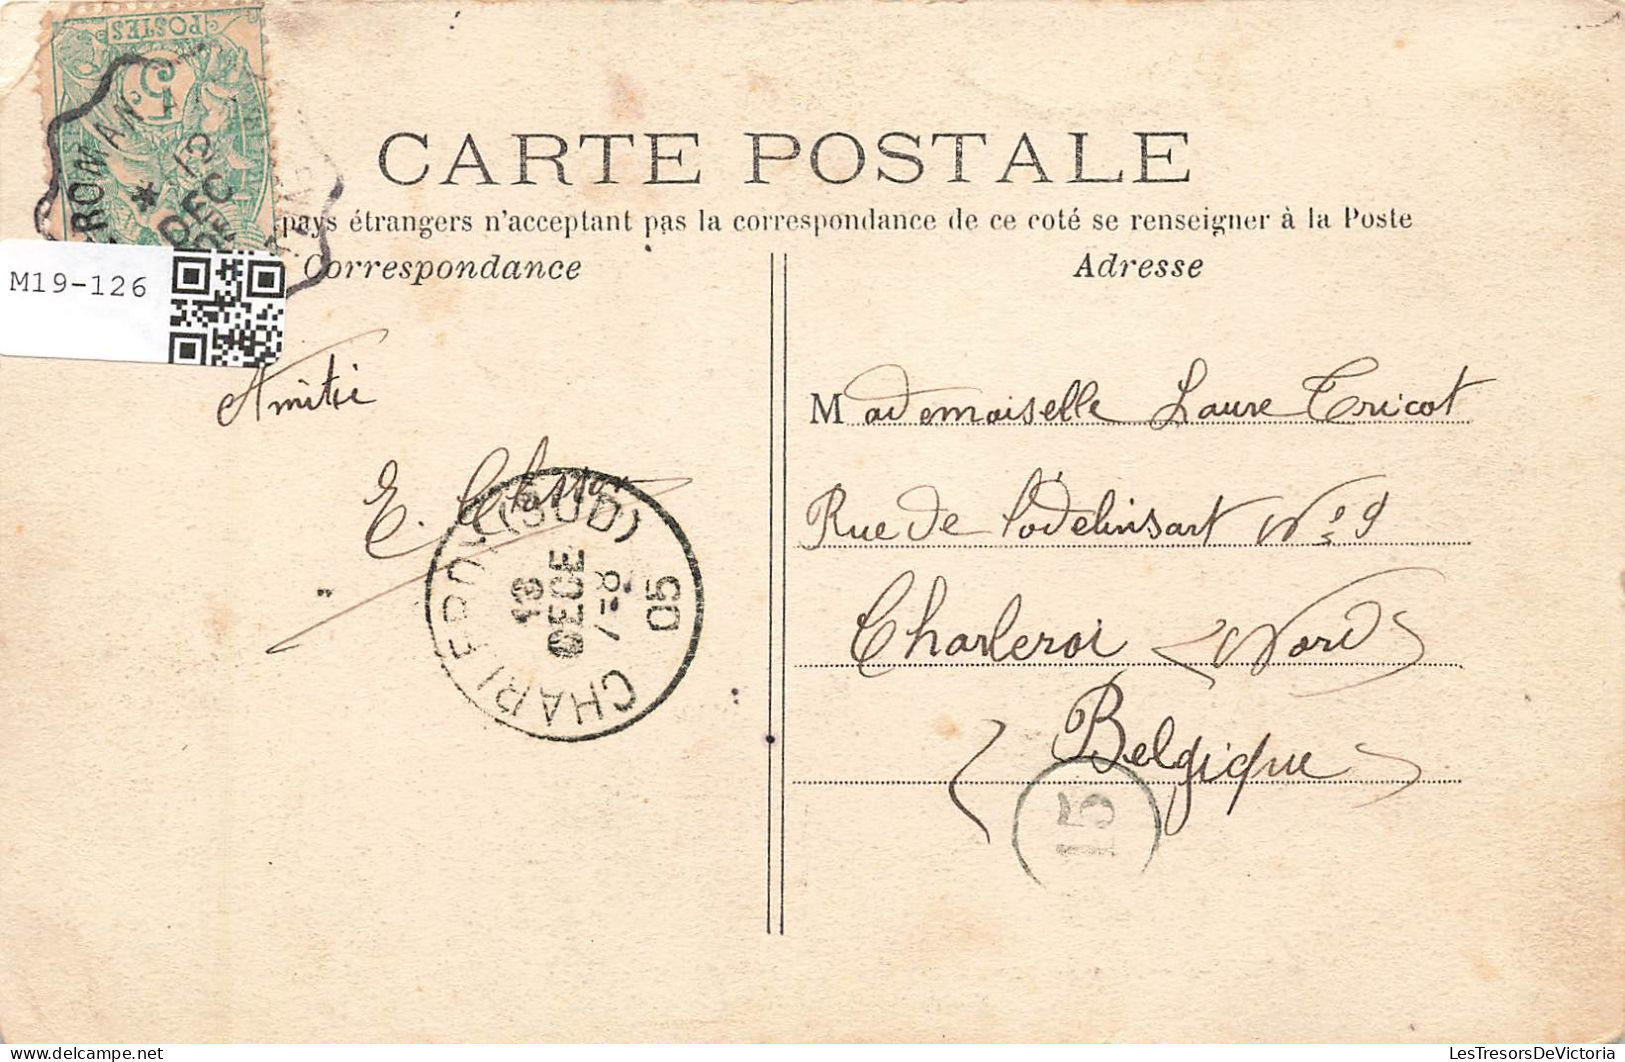 POSTES
5
CARTE POSTALE
pays étrangers n'acceptant pas la correspondance de ce coté se renseigner à la Poste
M19-126
Correspondance
Adresse
Amitié
E.
Mademoiselle Laure Tricot
Rue de Lodelinsart Nº 9
Charleroi (Nord)
(Belgique)
CHARLEROY (SUD)
13
DECE
7-8
05
15
LesTresorsDeVictoria